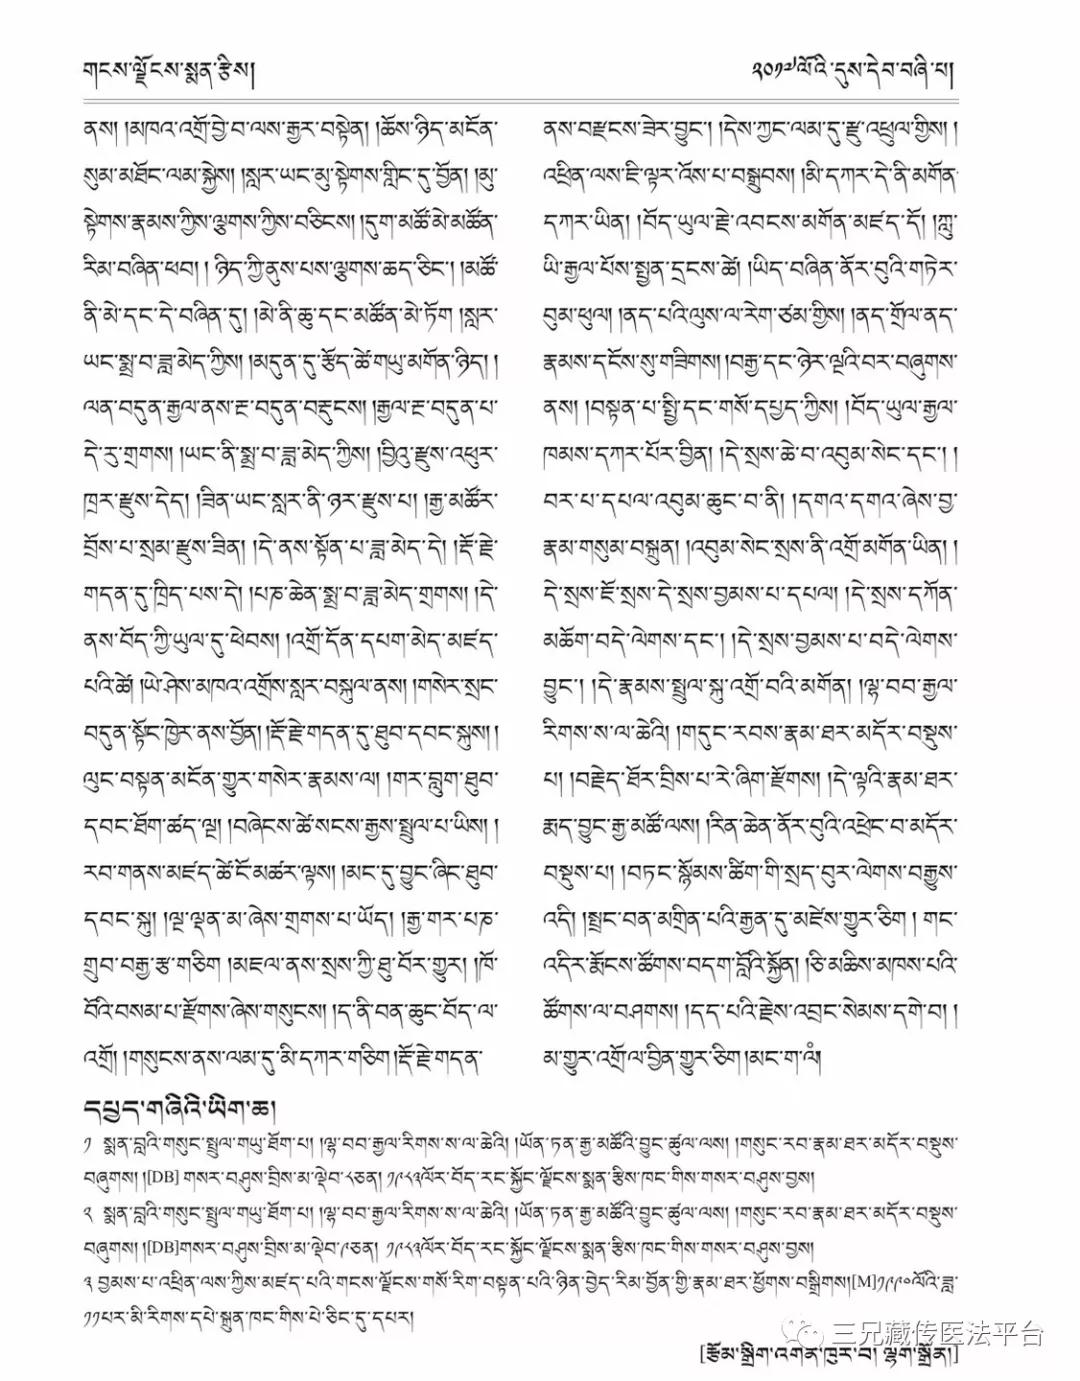 གངས་ལྗོངས་སྨན་རྩིས།
༢༠༡༧ལོའི་དུས་དེབ་བཞི་པ།
ནས། །མཁའ་འགྲོ་བྱེ་བ་ལས་རྒྱར་བསྟེན། །ཆོས་ཉིད་མངོན་
སུམ་མཐོང་ལམ་སྐྱེས། །སླར་ཡང་མུ་སྟེགས་གླིང་དུ་བྱོན། །མུ་
སྟེགས་རྣམས་ཀྱིས་ལྕགས་ཀྱིས་བཅིངས། །དུག་མཚོ་མེ་མཚོན་
རིམ་བཞིན་ཕབ། །ཉིད་ཀྱི་ནུས་པས་ལྕགས་ཆད་ཅིང་། །མཚོ་
ནི་མེ་དང་དེ་བཞིན་དུ། །མེ་ནི་ཆུ་དང་མཚོན་མེ་ཏོག །སླར་
ཡང་སྨྲ་བ་ཟླ་མེད་ཀྱིས། །མདུན་དུ་རྩོད་ཚེ་གཡུ་མགོན་ཉིད། །
ལན་བདུན་རྒྱལ་ནས་རྔ་བདུན་བརྡུངས། །རྒྱལ་རྔ་བདུན་པ་
དེ་རུ་གྲགས། །ཡང་ནི་སྨྲ་བ་ཟླ་མེད་ཀྱིས། །བྱིའུ་རྫུས་འཕུར་
ཁྲར་རྫུས་དེད། །ཟིན་ཡང་སླར་ནི་ཉར་རྫུས་པ། །རྒྱ་མཚོར་
བྲོས་པ་སྲམ་རྫུས་ཟིན། །དེ་ནས་སྟོན་པ་ཟླ་མེད་དེ། །རྡོ་རྗེ་
གདན་དུ་ཁྲིད་པས་དེ། །པཎ་ཆེན་སྨྲ་བ་ཟླ་མེད་གྲགས། །དེ་
ནས་བོད་ཀྱི་ཡུལ་དུ་ཕེབས། །འགྲོ་དོན་དཔག་མེད་མཛད་
པའི་ཚེ། །ཡེ་ཤེས་མཁའ་འགྲོས་སླར་བསྐུལ་ནས། །གསེར་སྲང་
བདུན་སྟོང་ཁྱེར་ནས་བྱོན། །རྡོ་རྗེ་གདན་དུ་ཐུབ་དབང་སྐུས། །
ལུང་བསྟན་མངོན་གྱུར་གསེར་རྣམས་ལ། །གར་བླུག་ཐུབ་
དབང་ཐོག་ཚད་ལྔ། །བཞེངས་ཚེ་སངས་རྒྱས་སྤྲུལ་པ་ཡིས། །
རབ་གནས་མཛད་ཚེ་ངོ་མཚར་ལྟས། །མང་དུ་བྱུང་ཞིང་ཐུབ་
དབང་སྐུ། །ལྔ་ལྡན་མ་ཞེས་གྲགས་པ་ཡོད། །རྒྱ་གར་པཎ་
གྲུབ་བརྒྱ་རྩ་གཅིག །མཇལ་ནས་སྲས་ཀྱི་ཐུ་བོར་གྱུར། །ཁོ་
བོའི་བསམ་པ་རྫོགས་ཞེས་གསུངས། །ད་ནི་བན་ཆུང་བོད་ལ་
འགྲོ། །གསུངས་ནས་ལམ་དུ་མི་དཀར་གཅིག །རྡོ་རྗེ་གདན་
ནས་བརྫངས་ཟེར་བྱུང་། །དེས་ཀྱང་ལམ་དུ་རྫུ་འཕྲུལ་གྱིས། །
འཕྲིན་ལས་ཇི་ལྟར་འོས་པ་བསྒྲུབས། །མི་དཀར་དེ་ནི་མགོན་
དཀར་ཡིན། །བོད་ཡུལ་རྗེ་འབངས་མགོན་མཛད་དོ། །ཀླུ་
ཡི་རྒྱལ་པོས་སྤྱན་དྲངས་ཚེ། །ཡིད་བཞིན་ནོར་བུའི་གཏེར་
བུམ་ཕུལ། །ནད་པའི་ལུས་ལ་རེག་ཙམ་གྱིས། །ནད་གྲོལ་ནད་
རྣམས་དངོས་སུ་གཟིགས། །བརྒྱ་དང་ཉེར་ལྔའི་བར་བཞུགས་
ནས། །བསྟན་པ་སྤྱི་དང་གསོ་དཔྱད་ཀྱིས། །བོད་ཡུལ་རྒྱལ་
ཁམས་དཀར་པོར་བྱིན། །དེ་སྲས་ཆེ་བ་འབུམ་སེང་དང་། །
བར་པ་དཔལ་འབུམ་ཆུང་བ་ནི། །དགའ་དགའ་ཞེས་བྱ་
རྣམ་གསུམ་བསྐྲུན། །འབུམ་སེང་སྲས་ནི་འགྲོ་མགོན་ཡིན། །
དེ་སྲས་ཇོ་སྲས་དེ་སྲས་བྱམས་པ་དཔལ། །དེ་སྲས་དཀོན་
མཆོག་བདེ་ལེགས་དང་། །དེ་སྲས་བྱམས་པ་བདེ་ལེགས་
བྱུང་། །དེ་རྣམས་སྤྲུལ་སྐུ་འགྲོ་བའི་མགོན། །ལྷ་བབ་རྒྱལ་
རིགས་ས་ལ་ཆེའི། །གདུང་རབས་རྣམ་ཐར་མདོར་བསྡུས་
པ། །བརྗེད་ཐོར་བྲིས་པ་རེ་ཞིག་རྫོགས། །དེ་ལྟའི་རྣམ་ཐར་
རྨད་བྱུང་རྒྱ་མཚོ་ལས། །རིན་ཆེན་ནོར་བུའི་འཕྲེང་བ་མདོར་
བསྡུས་པ། །བཏང་སྙོམས་ཚིག་གི་སྲད་བུར་ལེགས་བརྒྱུས་
འདི། །སྤྲང་བན་མགྲིན་པའི་རྒྱན་དུ་མཛེས་གྱུར་ཅིག །གང་
འདིར་རྨོངས་ཚོགས་བདག་བློའི་སྐྱོན། །ཅི་མཆིས་མཁས་པའི་
ཚོགས་ལ་བཤགས། །དད་པའི་རྗེས་འབྲང་སེམས་དགེ་བ། །
མ་གྱུར་འགྲོ་ལ་བྱིན་གྱུར་ཅིག །མང་ག་ལཾ།
དཔྱད་གཞིའི་ཡིག་ཆ།
༡ སྨན་བླའི་གསུང་སྤྲུལ་གཡུ་ཐོག་པ། །ལྷ་བབ་རྒྱལ་རིགས་ས་ལ་ཆེའི། །ཡོན་ཏན་རྒྱ་མཚོའི་བྱུང་ཚུལ་ལས། །གསུང་རབ་རྣམ་ཐར་མདོར་བསྡུས་
བཞུགས། །[DB] གསར་བཤུས་བྲིས་མ་ལྡེབ་༨ཅན། ༡༩༨༣ལོར་བོད་རང་སྐྱོང་ལྗོངས་སྨན་རྩིས་ཁང་གིས་གསར་བཤུས་བྱས།
༢ སྨན་བླའི་གསུང་སྤྲུལ་གཡུ་ཐོག་པ། །ལྷ་བབ་རྒྱལ་རིགས་ས་ལ་ཆེའི། །ཡོན་ཏན་རྒྱ་མཚོའི་བྱུང་ཚུལ་ལས། །གསུང་རབ་རྣམ་ཐར་མདོར་བསྡུས་
བཞུགས། །[DB]གསར་བཤུས་བྲིས་མ་ལྡེབ་༩ཅན། ༡༩༨༣ལོར་བོད་རང་སྐྱོང་ལྗོངས་སྨན་རྩིས་ཁང་གིས་གསར་བཤུས་བྱས།
༣ བྱམས་པ་འཕྲིན་ལས་ཀྱིས་མཛད་པའི་གངས་ལྗོངས་གསོ་རིག་བསྟན་པའི་ཉིན་བྱེད་རིམ་བྱོན་གྱི་རྣམ་ཐར་ཕྱོགས་བསྒྲིགས།[M]༡༩༩༠ལོའི་ཟླ་
༡༡པར་མི་རིགས་དཔེ་སྐྲུན་ཁང་གིས་པེ་ཅིང་དུ་དཔར།
三兄藏传医法平台
[རྩོམ་སྒྲིག་འགན་ཁུར་བ། ལྷག་སྒྲོན།]